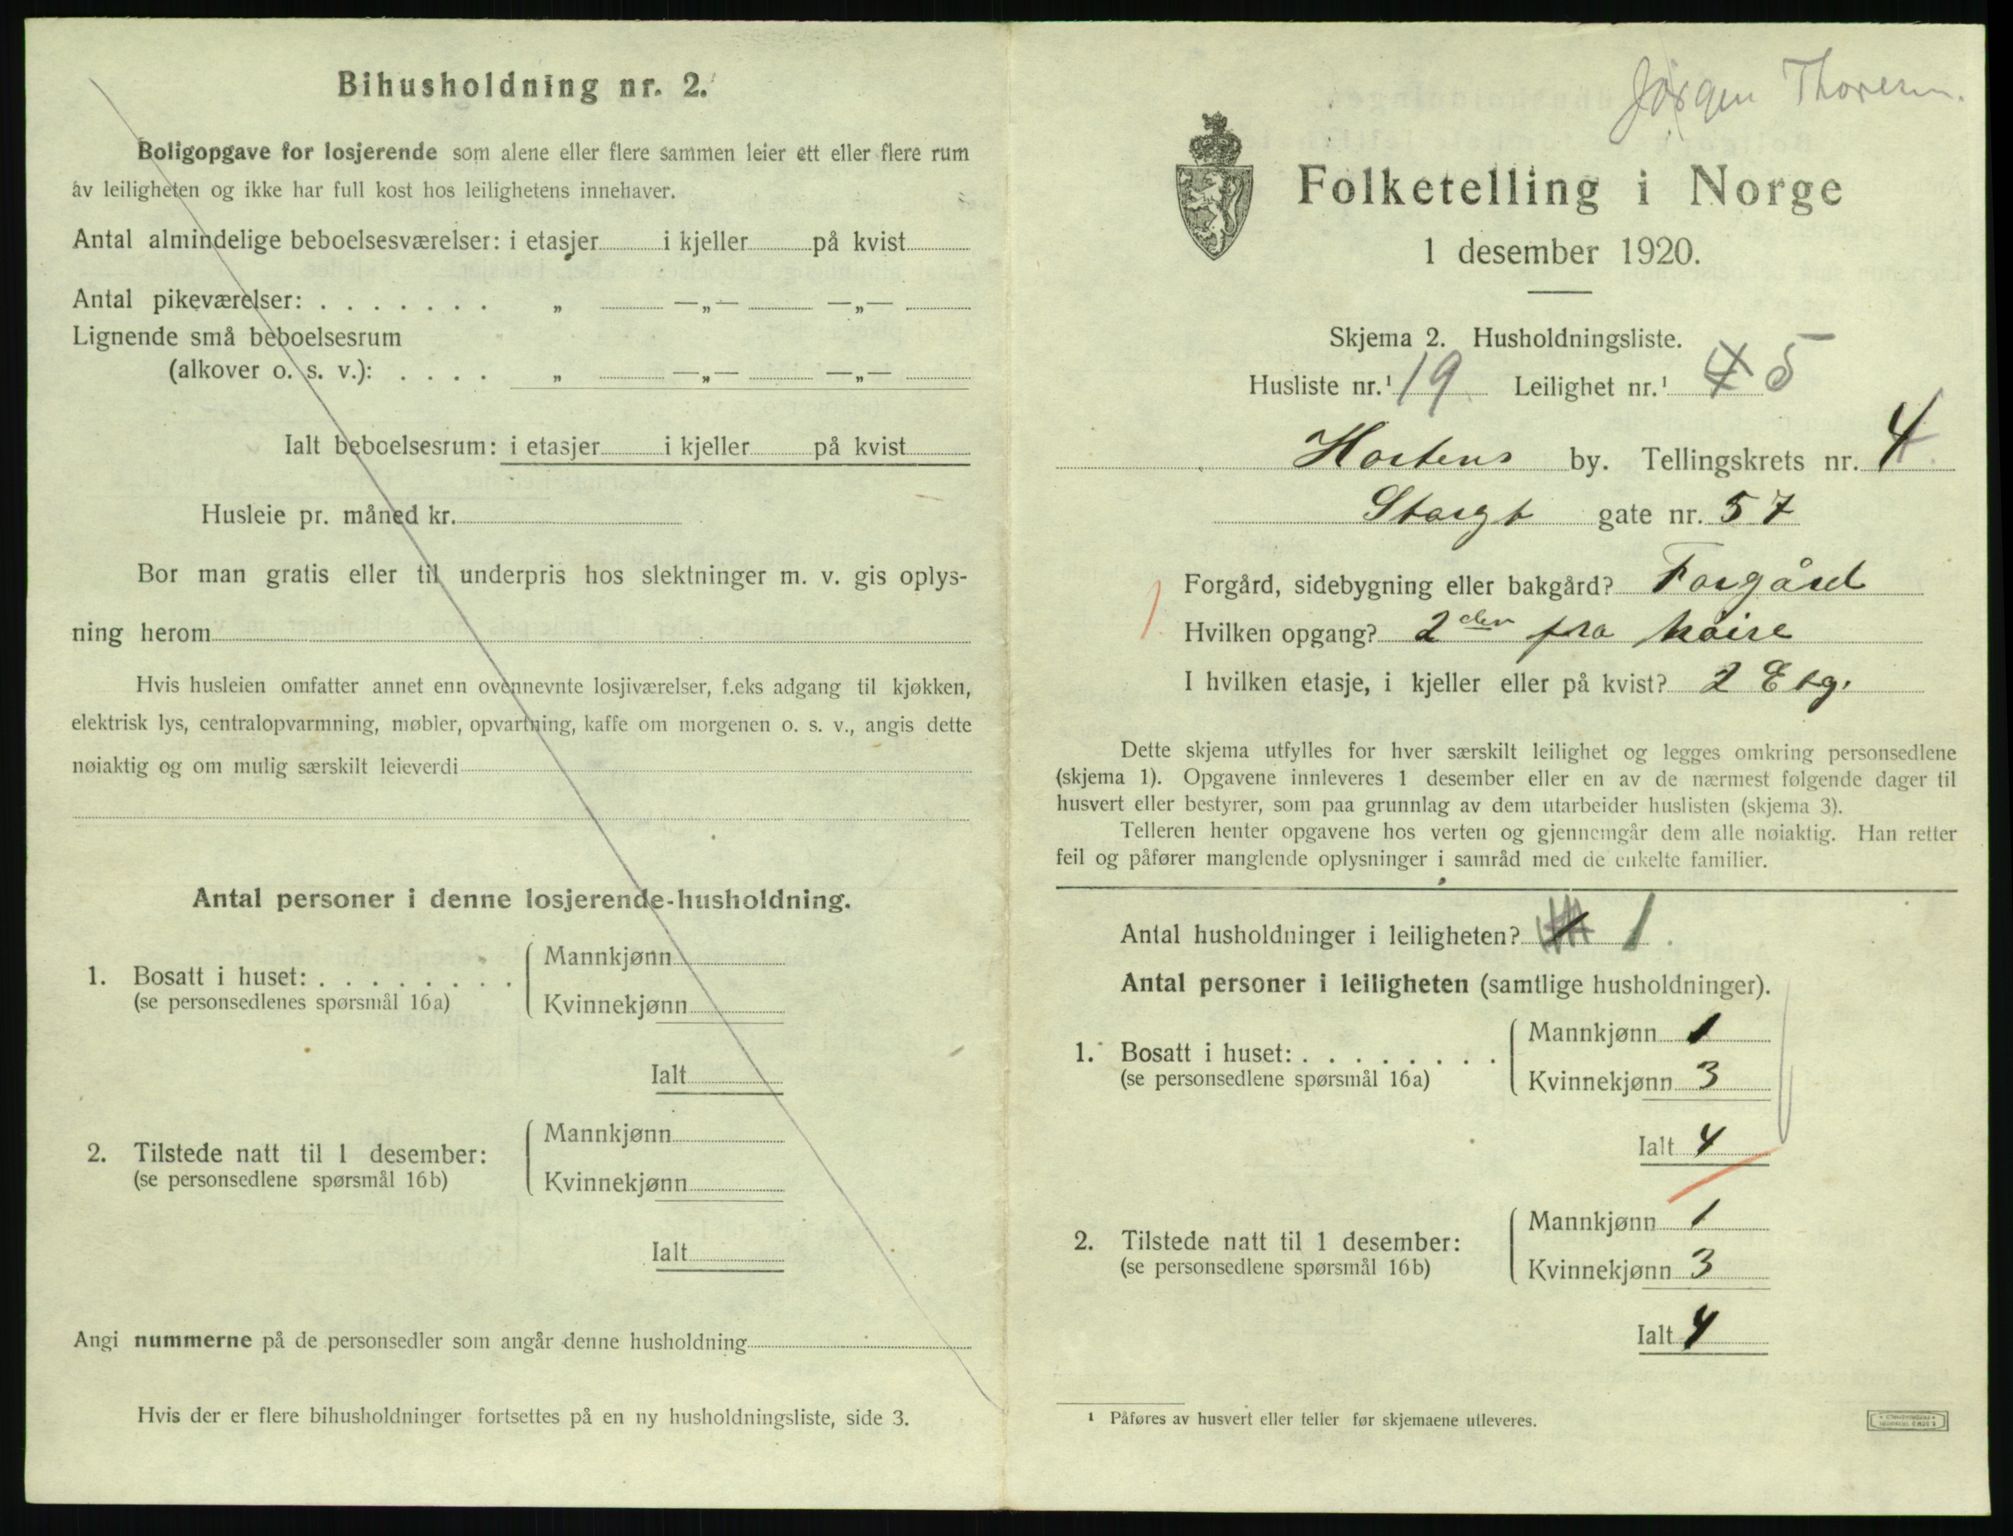 Bihusholdning nr. 2.
Boligopgave for losjerende som alene eller flere sammen leier ett eller flere rum
av leiligheten og ikke har full kost hos leilighetens innehaver.
Antal almindelige beboelsesværelser: i etasjer i kjeller på kvist
Antal pikeværelser: . . . . . . . „ —„— —„—
Lignende små beboelsesrum
(alkover o. s. v.): . . . . „ —„— —„—
Ialt beboelsesrum: i etasjer i kjeller på kvist
Husleie pr. måned kr.
Bor man gratis eller til underpris hos slektninger m. v. gis oplys-
ning herom
Hvis husleien omfatter annet enn ovennevnte losjiværelser, f.eks adgang til kjøkken,
elektrisk lys, centralopvarmning, møbler, opvartning, kaffe om morgenen o. s. v., angis dette
nøiaktig og om mulig særskilt leieverdi
Antal personer i denne losjerende-husholdning.
1. Bosatt i huset: . . . . . . . .
(se personsedlenes spørsmål 16a)
Mannkjønn
Kvinnekjønn
Ialt
2. Tilstede natt til 1 desember:
(se personsedlene spørsmål 16b)
Mannkjønn
Kvinnekjønn
Ialt
Angi nummerne på de personsedler som angår denne husholdning
Hvis der er flere bihusholdninger fortsettes på en ny husholdningsliste, side 3.
Jørgen Thoresen.
Folketelling i Norge
1 desember 1920.
Skjema 2. Husholdningsliste.
Husliste nr.¹ 19 Leilighet nr.¹ 5
Hortens by. Tellingskrets nr. 4
Storgt gate nr. 57
Forgård, sidebygning eller bakgård? Forgård
Hvilken opgang? 2den fra høire
I hvilken etasje, i kjeller eller på kvist? 2 Etg.
Dette skjema utfylles for hver særskilt leilighet og legges omkring personsedlene
(skjema 1). Opgavene innleveres 1 desember eller en av de nærmest følgende dager til
husvert eller bestyrer, som paa grunnlag av dem utarbeider huslisten (skjema 3).
Telleren henter opgavene hos verten og gjennemgår dem alle nøiaktig. Han retter
feil og påfører manglende oplysninger i samråd med de enkelte familier.
Antal husholdninger i leiligheten? 1
Antal personer i leiligheten (samtlige husholdninger).
1. Bosatt i huset: . . . . . . . .
(se personsedlene spørsmål 16a)
Mannkjønn 1
Kvinnekjønn 3
Ialt 4
2. Tilstede natt til 1 desember:
(se personsedlene spørsmål 16b)
Mannkjønn 1
Kvinnekjønn 3
Ialt 4
¹ Påføres av husvert eller teller før skjemaene utleveres.